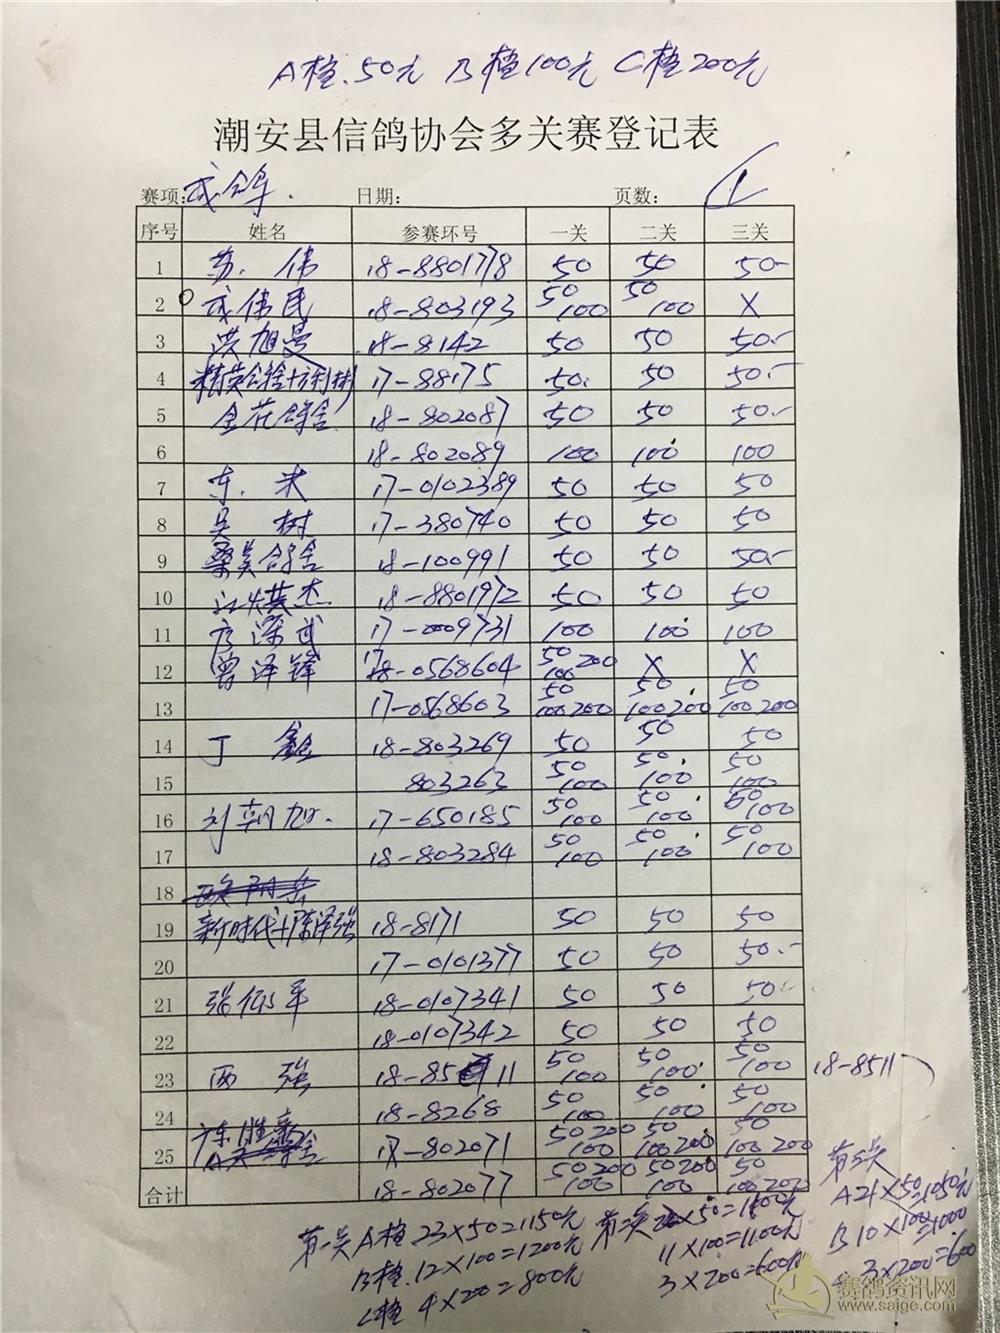 A档.50元 B档100元 C档200元
潮安县信鸽协会多关赛登记表
赛项:成鸽. 日期: 页数: 1
序号 姓名 参赛环号 一关 二关 三关
1 苏.伟 18-8801778 50 50 50-
2 成伟民 18-803193 50 100 50 100 X
3 洪旭曼 18-8142 50 50 50.-
4 17-88175 50. 50 50.-
5 金花鸽舍 18-802087 50 50 50.-
6 18-802089 100 100 100
7 东.米 17-0102389 50 50 50
8 吴树 17-380740 50 50 50
9 桑吴鸽舍 18-100991 50 50 50.-
10 江焕杰 18-8801972 50 50 50
11 17-0009731 100 100 100
12 曾泽锋 17-0568604 50 200 100 X X
13 17-0568603 50 100 200 50 100 200 50 100 200
14 丁鑫 18-803269 50 50 50
15 803263 50 100 50 100 50 100
16 刘朝加. 17-650185 50 100 50 100 50 100
17 18-803284 50 100 50 100 50 100
18
19 新时代+陈泽强 18-8171 50 50 50
20 17-0101377 50 50 50.-
21 张仰军 18-0107341 50 50 50
22 18-0107342 50 50 50
23 西强 18-85 11 50 100 50 100 50 100 18-8511
24 18-8268 50 100 50 100 50 100
25 18-802071 50 200 100 50 100 200 50 100 200
合计 18-802077 50 200 100 50 200 100 50 100 200
第一关A档.23×50=1150元
B档.12×100=1200元
C档 4×200=800元
第二关 ×50=1100元
11×100=1100元
3×200=600元
第三关
A21×50=1050元
B10×100=1000
3×200=600
赛鸽资讯网
www.saige.com